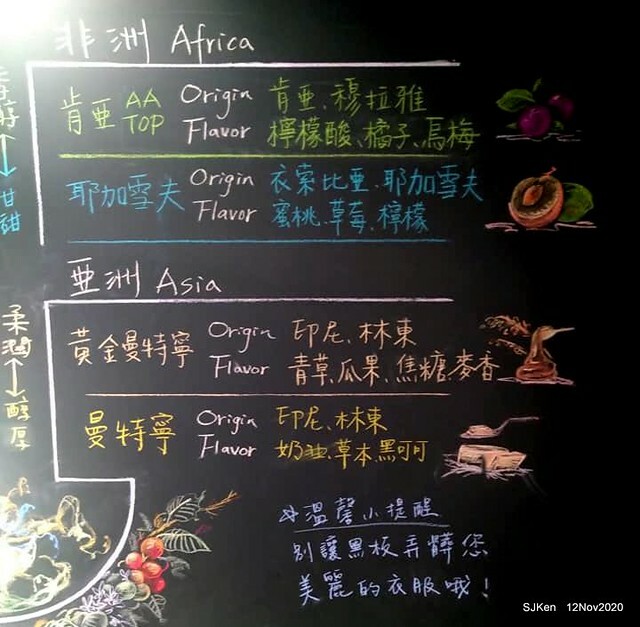 非洲 Africa
肯亞 AA TOP Origin 肯亞、穆拉雅
Flavor 檸檬酸、橘子、烏梅
甘甜
耶加雪夫 Origin 衣索比亞、耶加雪夫
Flavor 蜜桃、草莓、檸檬
亞洲 Asia
柔潤
醇厚
黃金曼特寧 Origin 印尼、林東
Flavor 青草、瓜果、焦糖、麥香
曼特寧 Origin 印尼、林東
Flavor 奶油、草本、黑可可
溫馨小提醒
別讓黑板弄髒您
美麗的衣服哦！
SJKen 12Nov2020